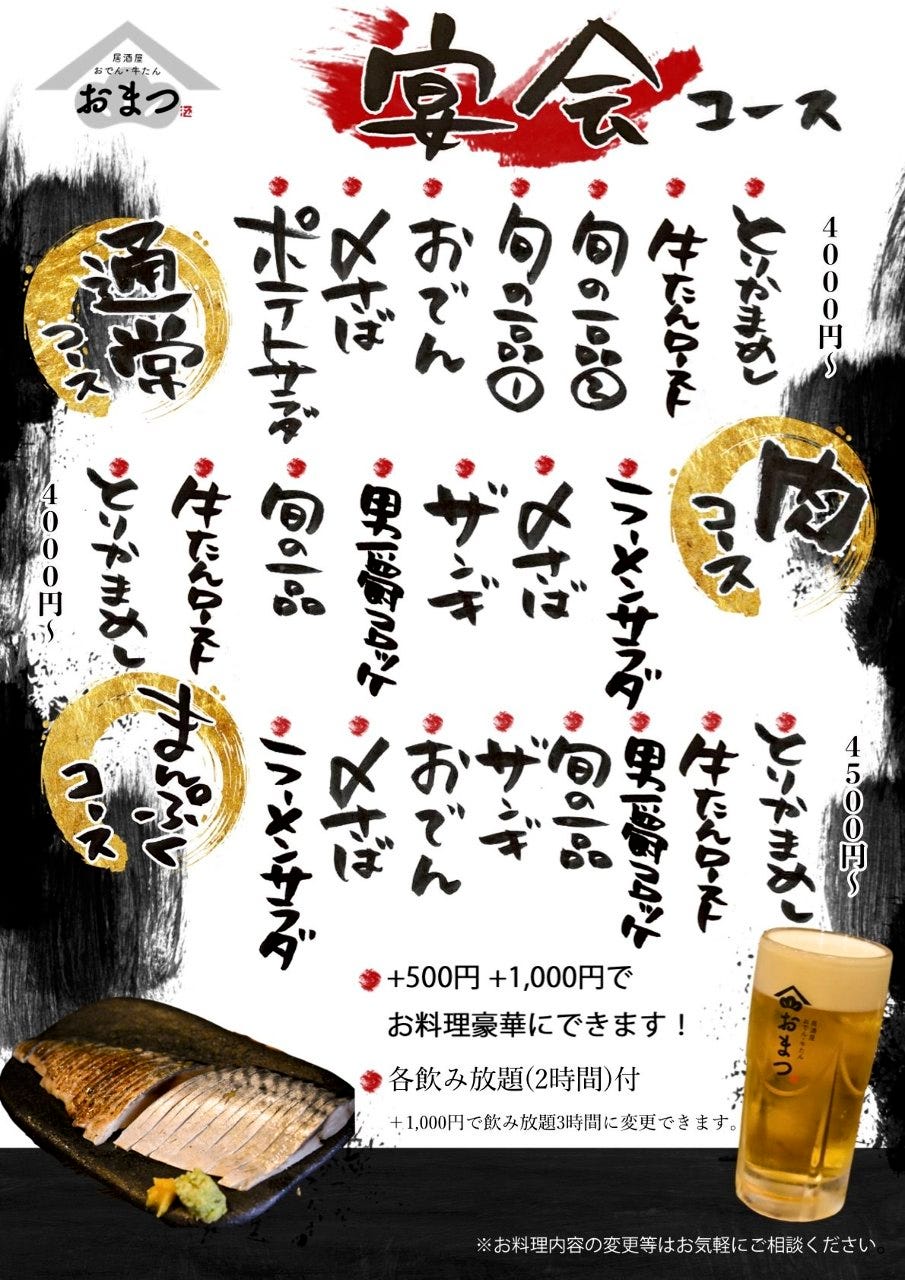 居酒屋
おでん・牛たん
おまつ
宴会コース
通常
コース
ポテトサラダ
〆さば
おでん
旬の一品①
旬の一品②
牛たんロースト
とりかまめし
4000円〜
肉
コース
ラーメンサラダ
〆さば
ザンギ
男爵コロッケ
旬の一品
牛たんロースト
とりかまめし
4000円〜
まんぷく
コース
ラーメンサラダ
〆さば
おでん
ザンギ
旬の一品
男爵コロッケ
牛たんロースト
とりかまめし
4500円〜
+500円 +1,000円で
お料理豪華にできます！
各飲み放題(2時間)付
＋1,000円で飲み放題3時間に変更できます。
居酒屋
おでん・牛たん
おまつ
※お料理内容の変更等はお気軽にご相談ください。